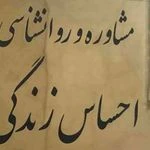 مشاوره و روانشناسی
احساس زندگی